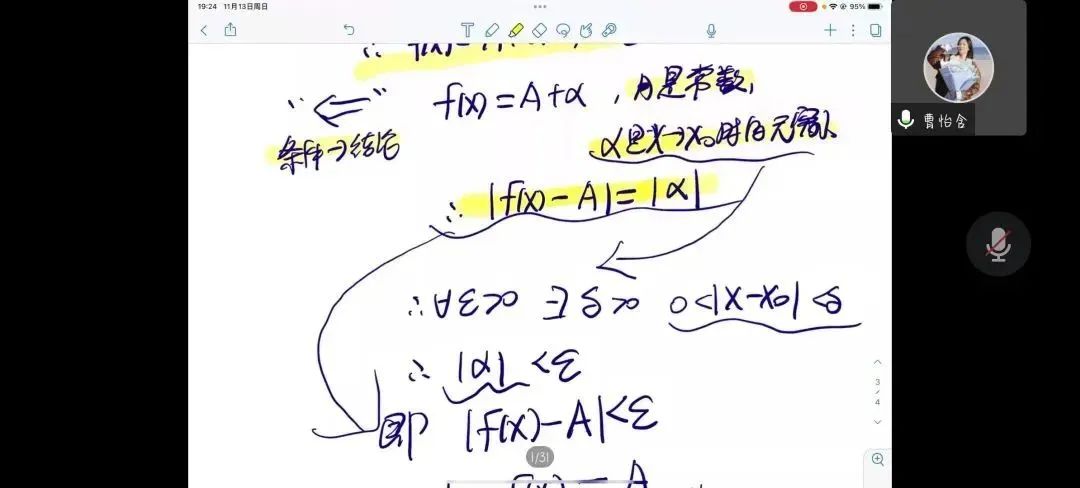 19:24 11月13日周日
95%
∴ f(x)=
"⇐" f(x)=A+α，A是常数，
条件→结论 α是x→x₀时的无穷小
∴ |f(x)-A|=|α|
∴ ∀ε>0 ∃δ>0 0<|x-x₀|<δ
∴ |α|<ε
即 |f(x)-A|<ε
f(x)=A
1/31
3/4
曹怡含